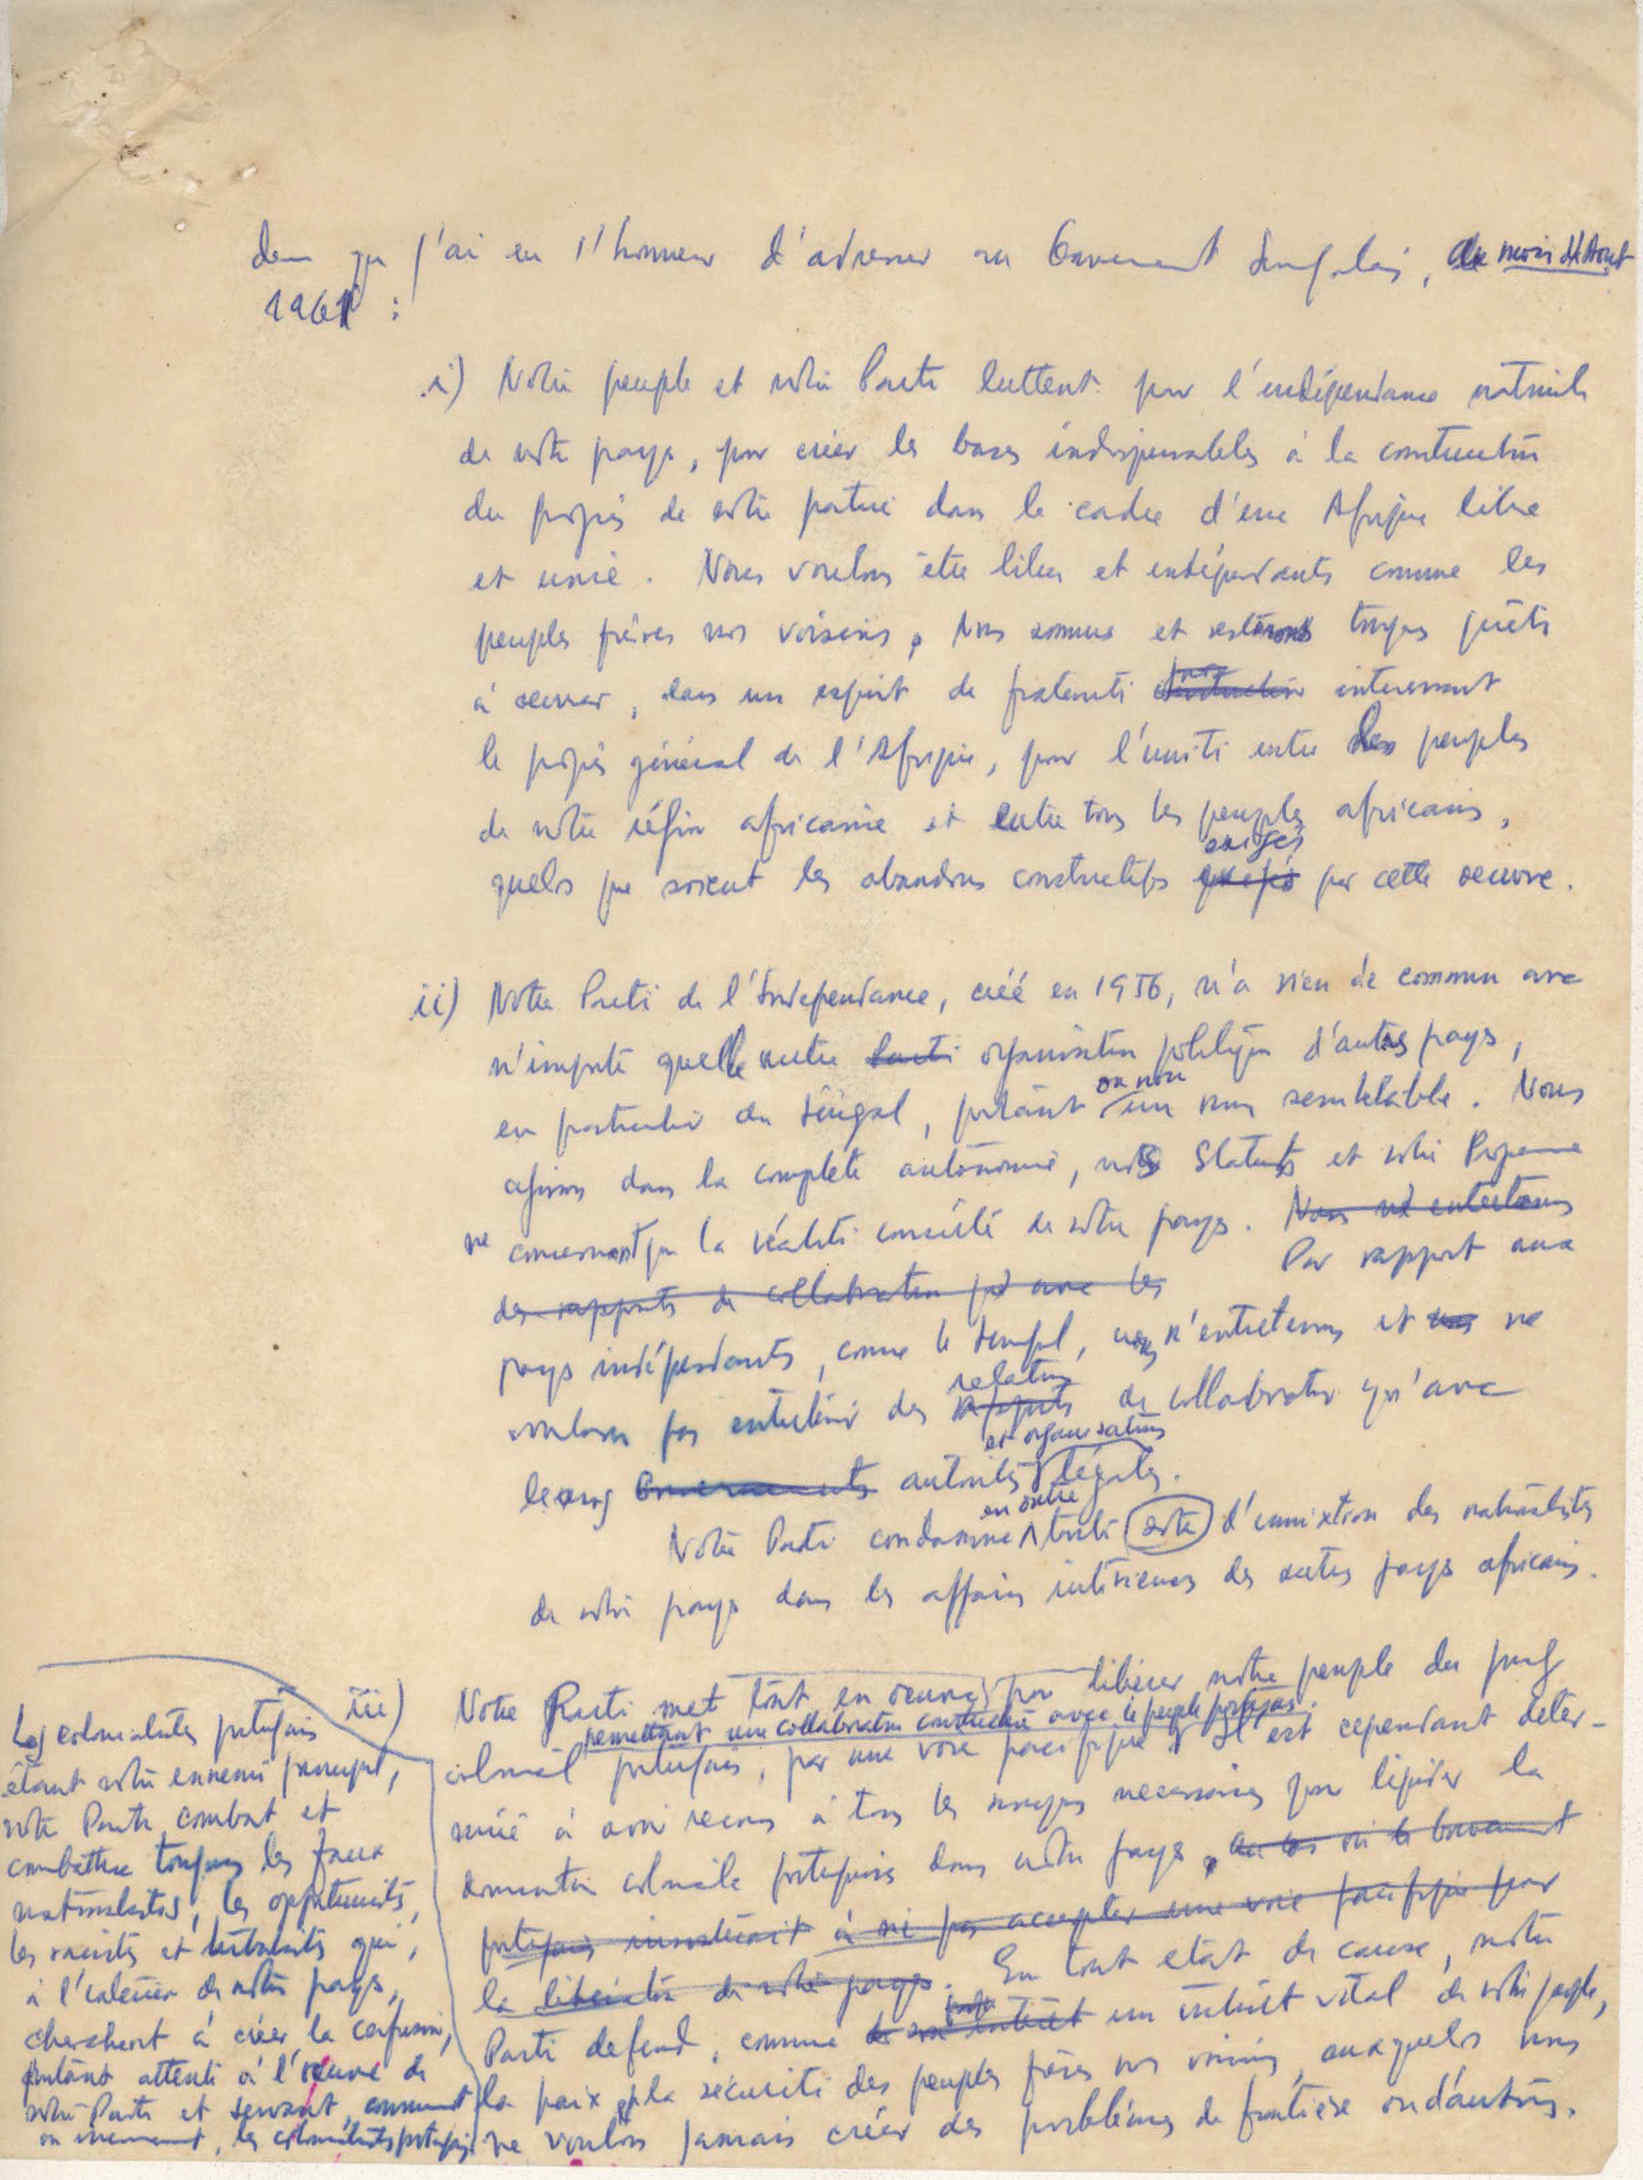 j'ai eu l'honneur d'adresser au Gouvernement Sénégalais, mois d'Aout
1961 :
i) Notre peuple et notre Parti luttent pour l'indépendance nationale
de notre pays, pour créer les bases indispensables à la construction
du progrès de notre patrie dans le cadre d'une Afrique libre
et unie. Nous voulons être libres et indépendants comme les
peuples frères nos voisins. Nous sommes et resterons toujours prêts
à oeuvrer, dans un esprit de fraternité interessant
le progrès général de l'Afrique, pour l'unité entre les peuples
de notre région africaine et entre tous les peuples africains,
quels que soient les abandons constructifs exigés par cette oeuvre.
ii) Notre Parti de l'Independance, créé en 1956, n'a rien de commun avec
n'importe quelle autre Parti organisation politique d'autres pays,
en particulier du Sénégal, portant ou non un nom semblable. Nous
agissons dans la complète autonomie, nos Statuts et notre Programme
ne concernant que la réalité concrète de notre pays. Nous entretenons
des rapports de collaboration avec les
Par rapport aux
pays indépendants, comme le Sénégal, nous n'entretenons et nous ne
voulons pas entretenir des rapports relations de collaboration qu'avec
leurs Gouvernements autorités et organisations légales.
Notre Parti condamne en outre toute sorte d'immixtion des nationalistes
de notre pays dans les affaires intérieures des autres pays africains.
iii) Notre Parti met tout en oeuvre pour libérer notre peuple du joug
colonial portugais, par une voie pacifique permettant une collaboration constructive avec le peuple portugais. Il est cependant déter-
miné à avoir recours à tous les moyens necessaires pour liquider la
domination coloniale portugaise dans notre pays, au cas où le Gouvernement
portugais insisterait à ne pas accepter une voie pacifique pour
la libération de notre pays. En tout etat de cause, notre
Parti defend, comme un intérêt vital de notre peuple,
la paix et la sécurité des peuples frères nos voisins, auxquels nous
ne voulons jamais créer des problèmes de frontière ou d'autres.
Les colonialistes portugais
étant notre ennemi principal,
notre Parti combat et
combattra toujours les faux
nationalistes, les opportunistes,
les racistes et tribalistes qui,
à l'extérieur de notre pays,
cherchent à créer la confusion,
portant atteinte à l'oeuvre de
notre Parti et servant, consciemment
ou inconsciemment, les colonialistes portugais.